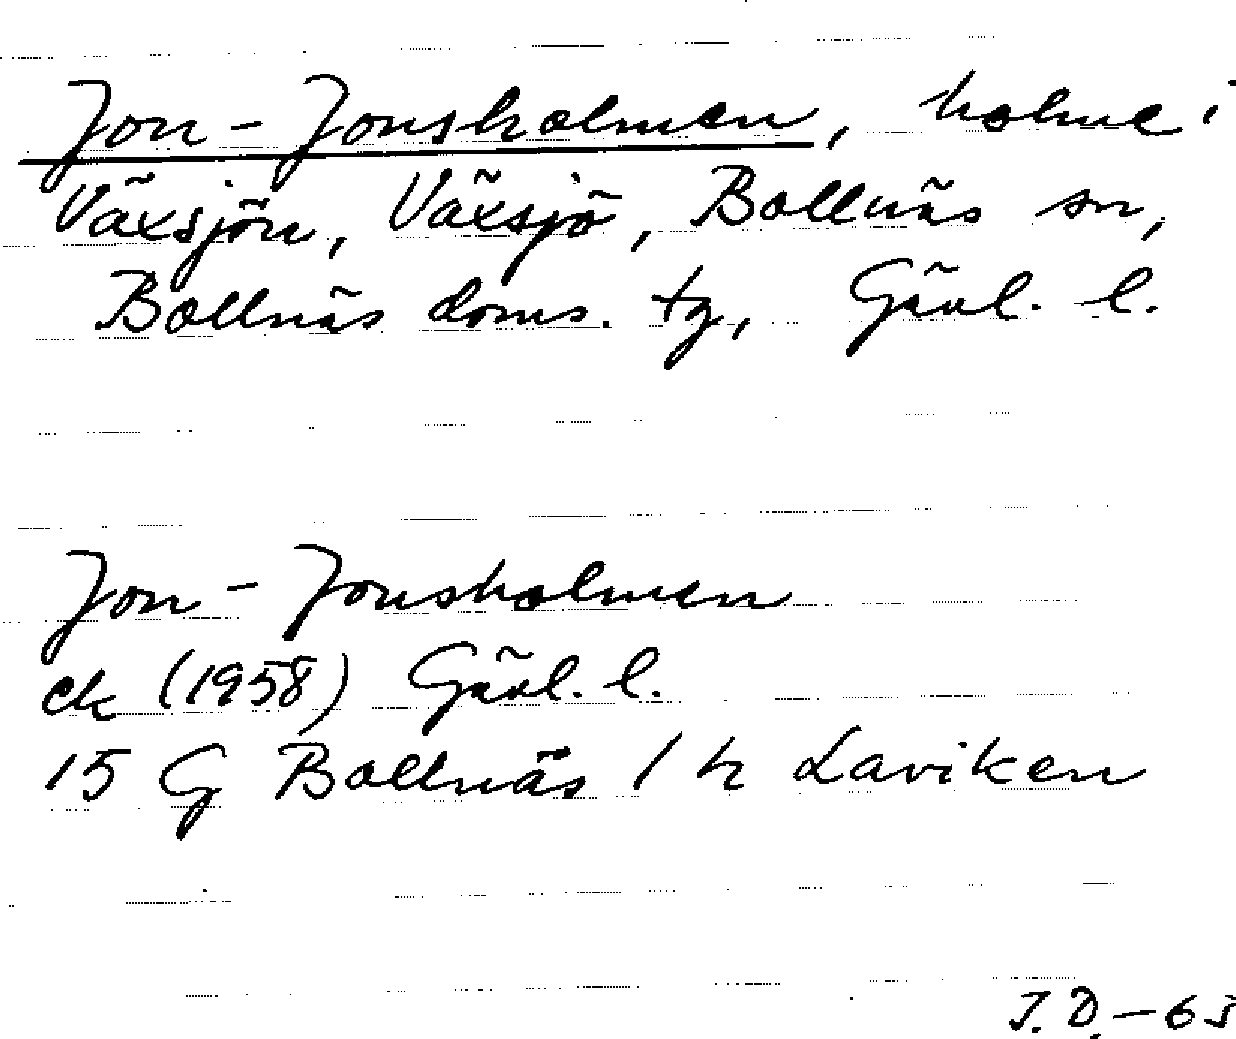 Jon-Jonsholmen, holme i
Växsjön, Växsjö, Bollnäs sn,
Bollnäs doms. tg, Gävl. l.
Jon-Jonsholmen
ek (1958) Gävl. l.
15 G Bollnäs 1 h Laviken
J. D. - 63